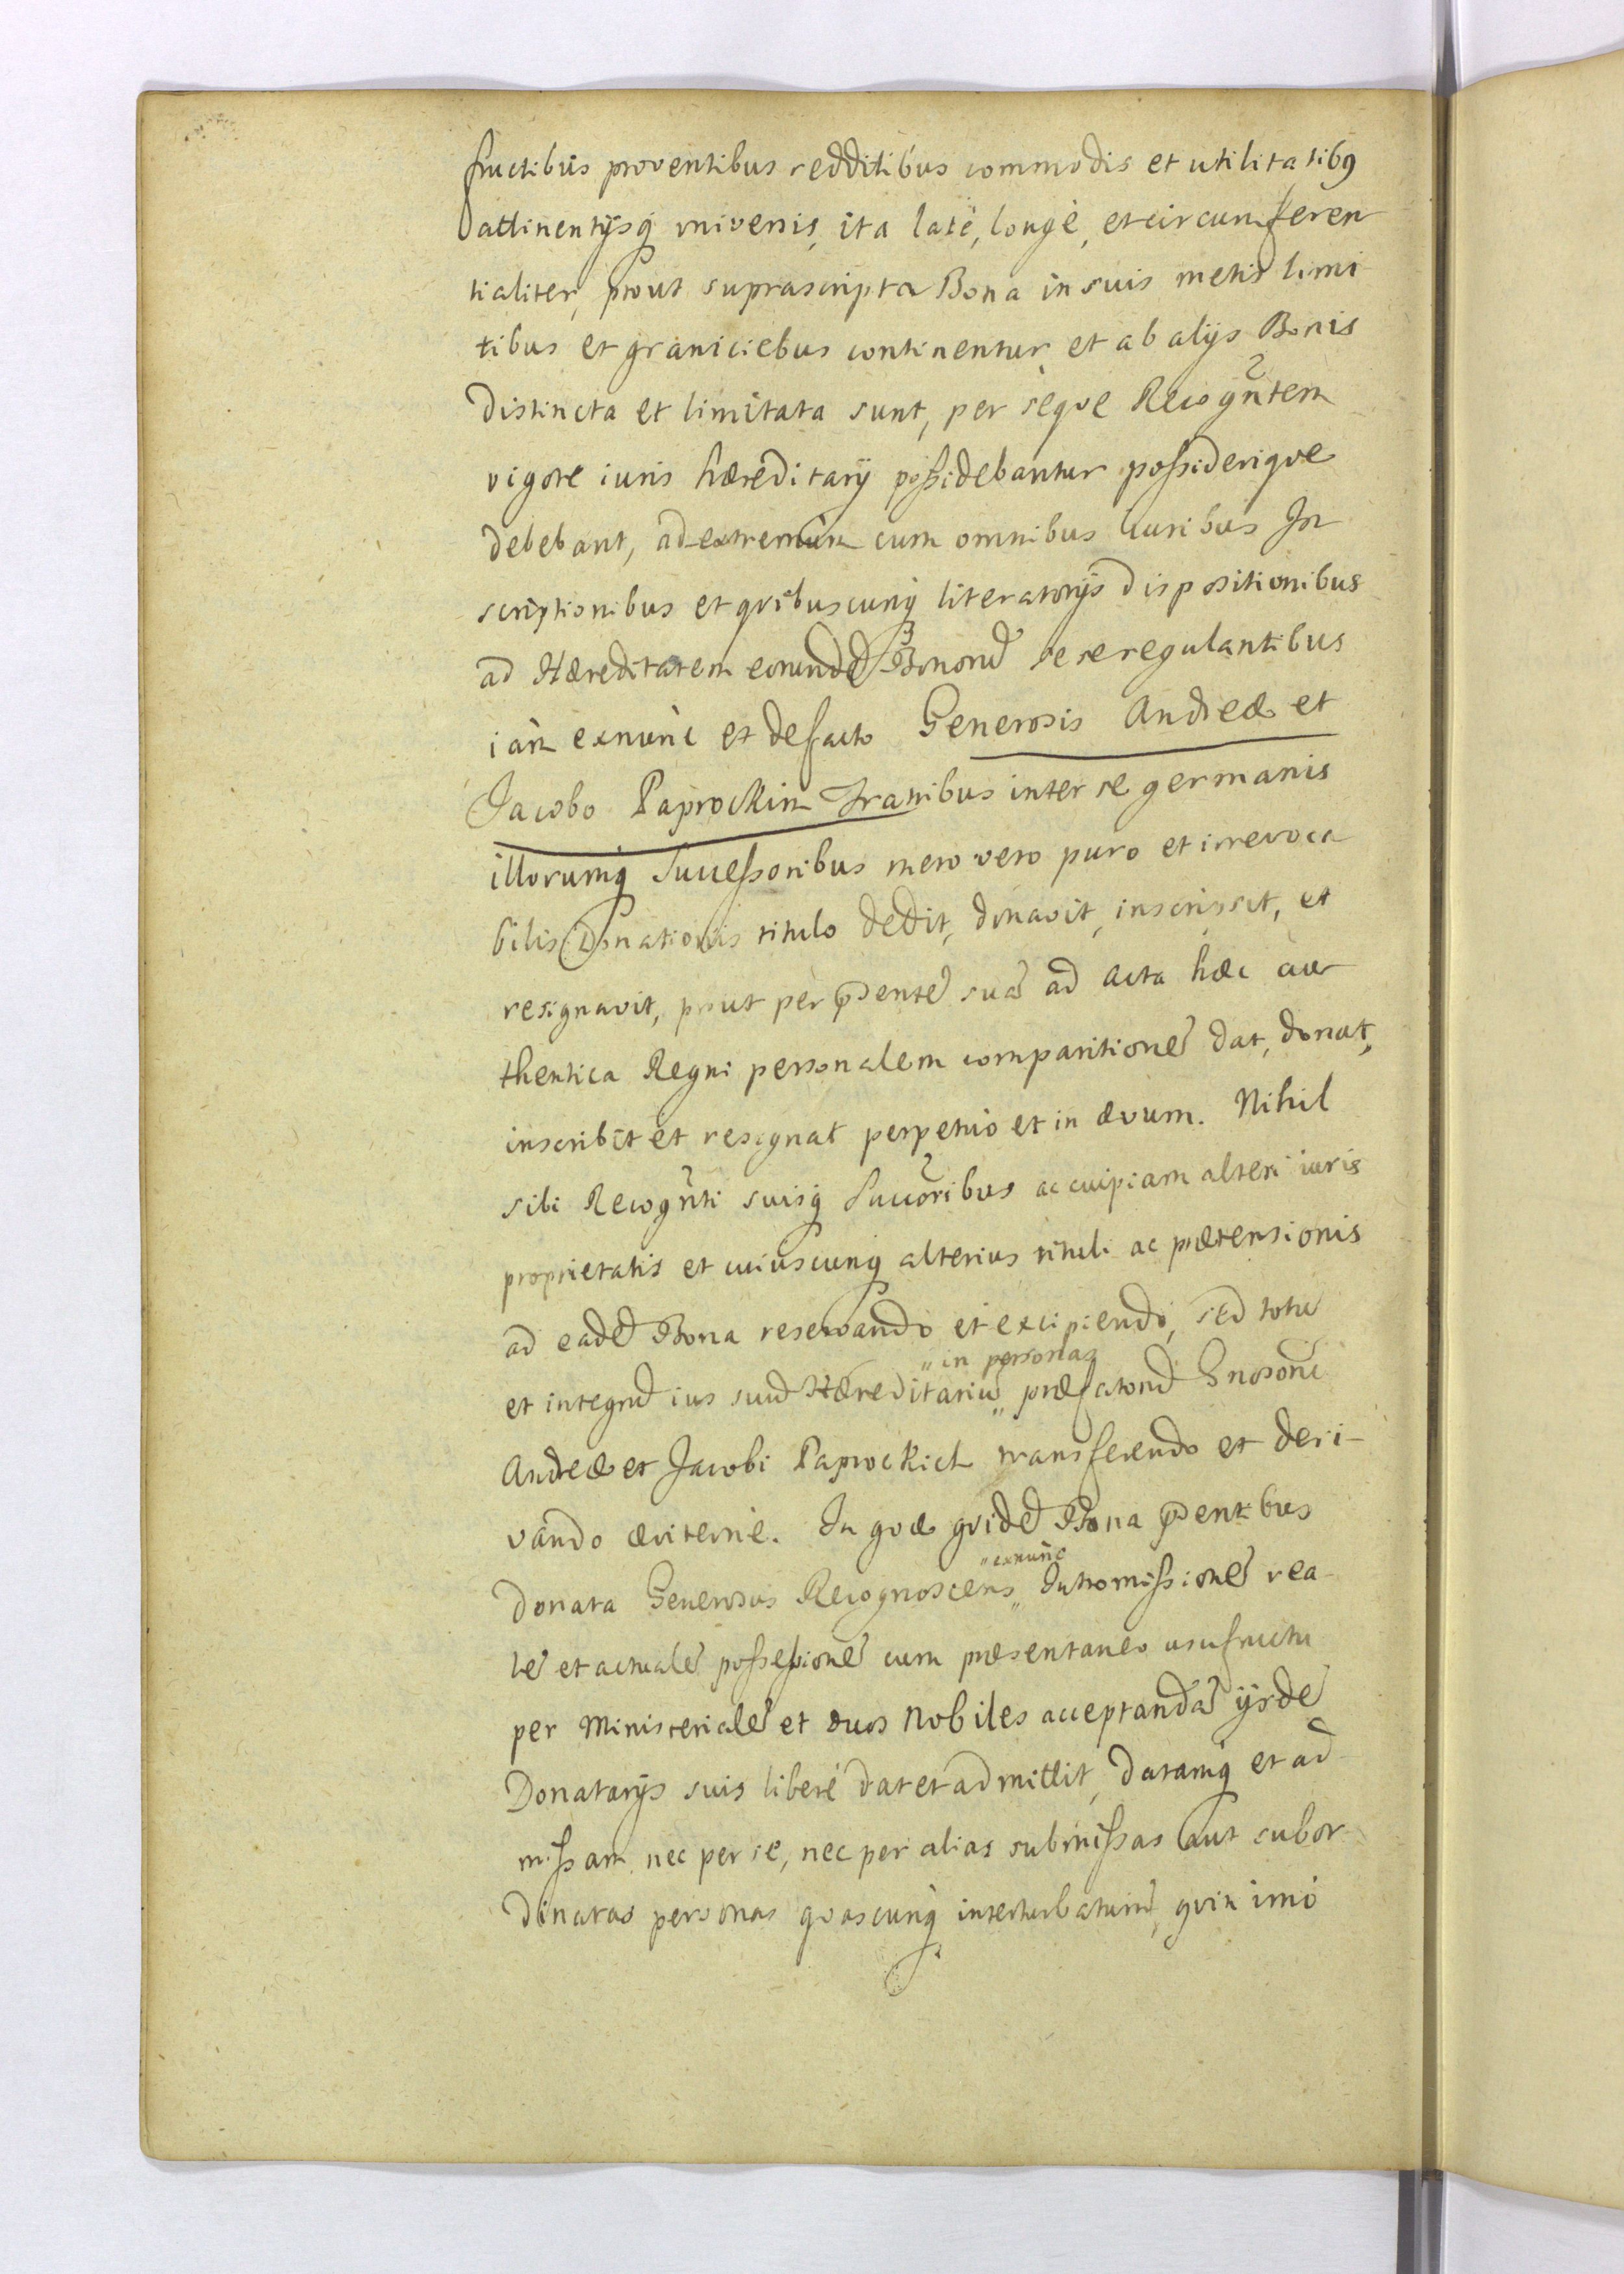 fructibus proventibus redditibus commodis et utilitatibq
attinentijsq vniversis, ita latè, longè, et circumferen
tialiter, prout suprascripta Bona in suis metis limi
tibus et graniciebus continentur et ab alijs Bonis
distincta et limitata sunt, per seqve Recogñtem
vigore iuris hæreditarij possidebantur possiderique
debebant, ad extremum cum omnibus iuribus In
scriptionibus et qvibuscunq literatorijs dispositionibus
ad Hæreditatem eorundẽ Bonorũ sese regulantibus
iam exnunc et defacto Generosis Andreæ et
Jacobo Paprockim Fratribus inter se germanis
illorumq Successoribus mero vero puro et irrevoca
bilis Donationis titulo dedit, donavit, inscripsit, et
resignavit, prout per p̃dentẽ suã ad Acta hæc au
thentica Regni personalem comparitionẽ dat, donat,
inscribit et resignat perpetuò et in ævum. Nihil
sibi Recogñti suisq Succõribus ac cuipiam alteri iuris
proprietatis et cuiuscunq alterius tituli ac prætensionis
ad eadẽ Bona reservando et excipiendo, sed totũ
et integrũ ius suũ Hæreditariũ „ in personas „ præfatorũ Gnosorũ
Andreæ et Jacobi Paprockich transferendo et deri-
vando æviternè. In qvæ qvidẽ Bona p̃dentibus
donata Generosus Recognoscens „ exnunc „ Intromissionẽ rea-
lẽ et actualẽ possessionẽ cum præsentaneo usufructu
per Ministerialẽ et duos Nobiles acceptandã ijsdẽ
Donatarijs suis liberè dat et admittit, datamq et ad-
missam nec per se, nec per alias submissas aut subor
dinatas personas qvascunq interturbaturũ, qvin imò